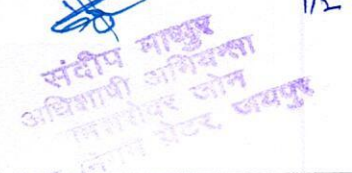 1/2
संदीप माथुर
अधिशाषी अभियन्ता
जोन
ग्रेटर, जयपुर